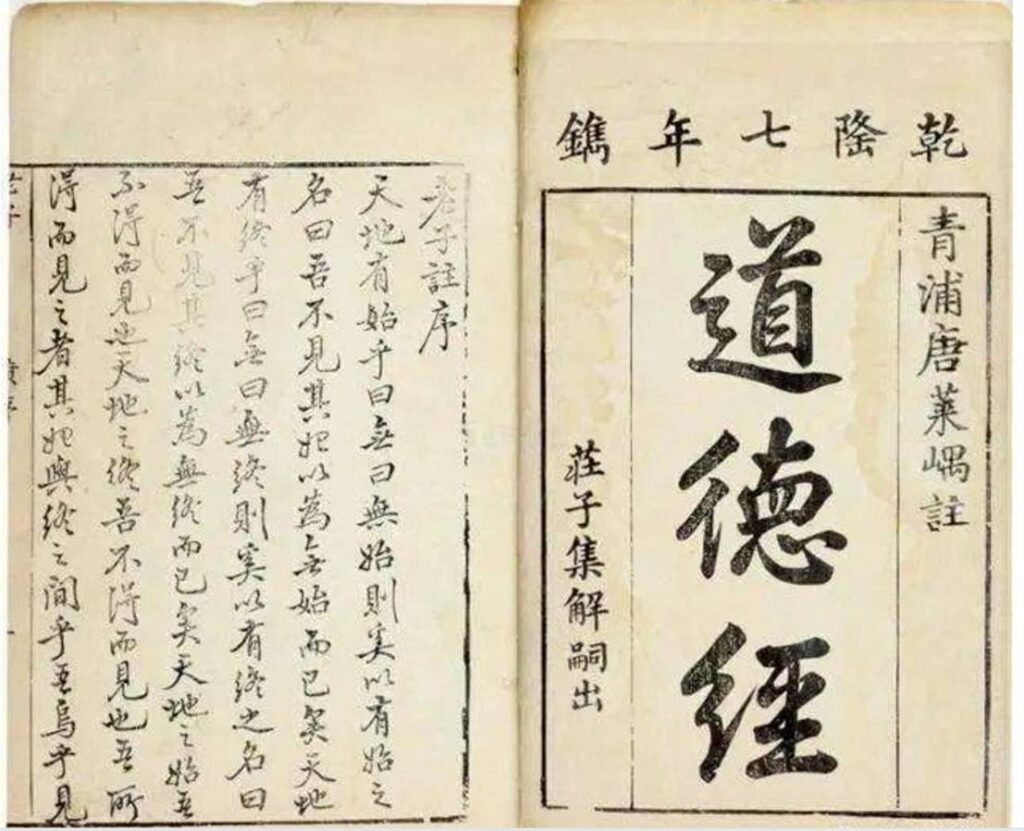 乾隆七年鐫
青浦唐莱嵎註
道德經
莊子集解嗣出
老子註序
天地有始乎曰無曰無始則奚以有始之
名曰吾不見其始以為無始而已矣天地
有終乎曰無曰無終則奚以有終之名曰
吾不見其終以為無終而已矣天地之始吾
不得而見也天地之終吾不得而見也吾所
得而見之者其始與終之間乎吾烏乎見